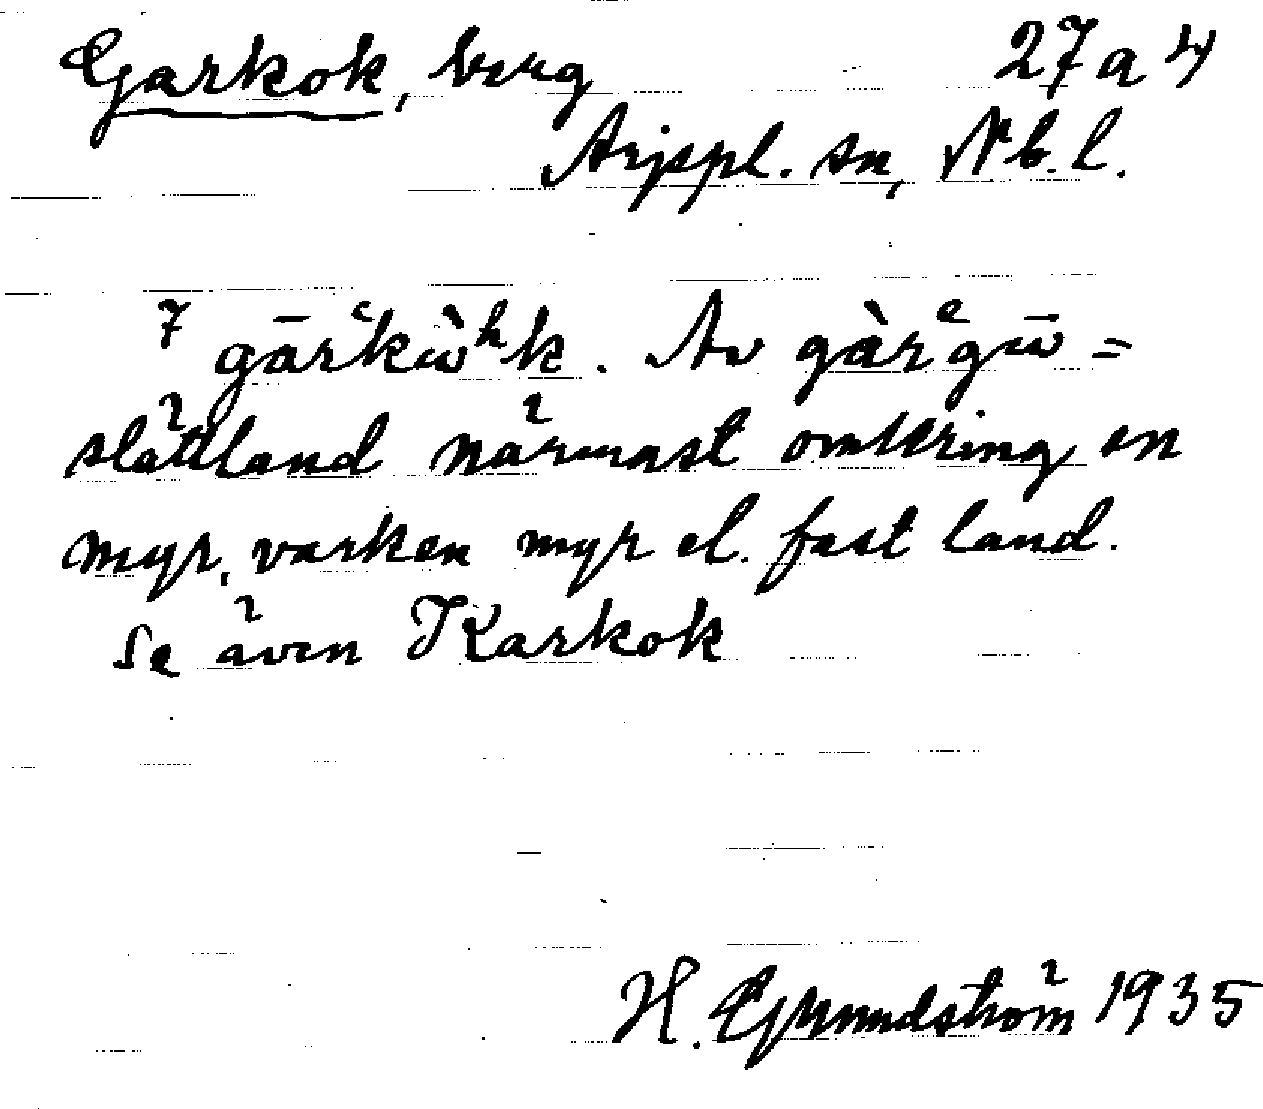 Garkok, berg 27a4
Arjspl. sn, Nb. l.
7 gārᵉkὼʰk. Av gàrᵉgω̄ =
slättland närmast omkring en
myr, varken myr el. fast land.
Se även Karkok
H. Grundström 1935